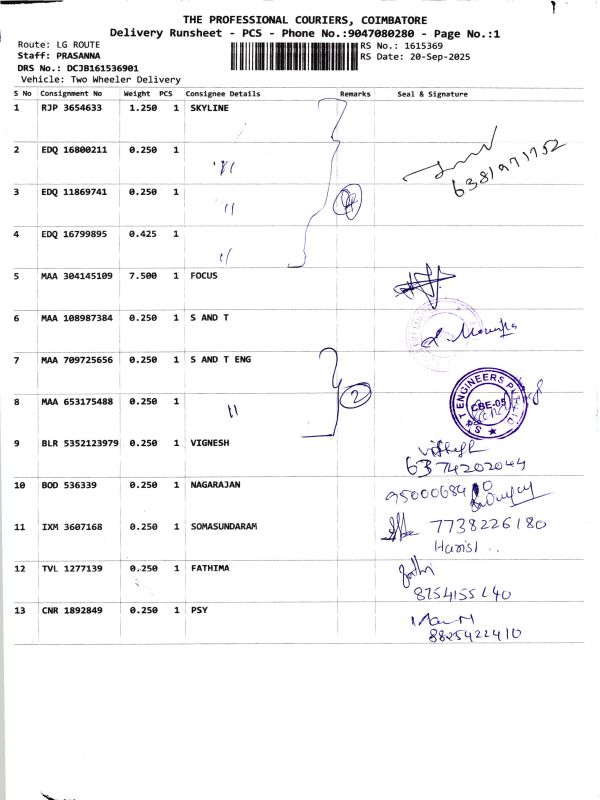 THE PROFESSIONAL COURIERS, COIMBATORE
Delivery Runsheet - PCS - Phone No.:9047080280 - Page No.:1
Route: LG ROUTE
Staff: PRASANNA
DRS No.: DCJB161536901
Vehicle: Two Wheeler Delivery
RS No.: 1615369
RS Date: 20-Sep-2025
S No Consignment No Weight PCS Consignee Details Remarks Seal & Signature
1 RJP 3654633 1.250 1 SKYLINE
2 EDQ 16800211 0.250 1 "
6381971752
3 EDQ 11869741 0.250 1 " 4
4 EDQ 16799895 0.425 1 "
5 MAA 304145109 7.500 1 FOCUS
6 MAA 108987384 0.250 1 S AND T
7 MAA 709725656 0.250 1 S AND T ENG
8 MAA 653175488 0.250 1 " 2
S & T ENGINEERS P
CBE-05
9 BLR 5352123979 0.250 1 VIGNESH
6374202044
10 BOD 536339 0.250 1 NAGARAJAN
11 IXM 3607168 0.250 1 SOMASUNDARAM 7738226180
12 TVL 1277139 0.250 1 FATHIMA
13 CNR 1892849 0.250 1 PSY
8825422410